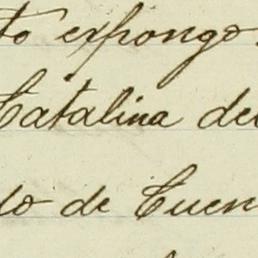 to expongo.
Catalina de
do de Cuen